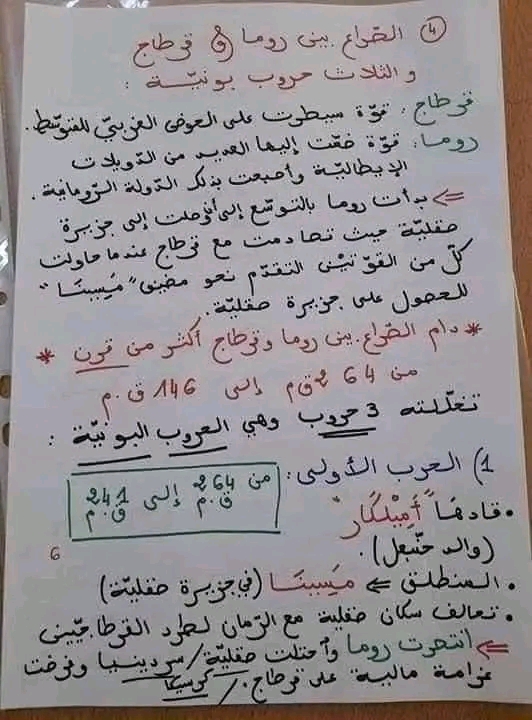 4) الصّراع بين روما و قرطاج
و الثلاث حروب بونيّة :
قرطاج : قوّة سيطرت على الحوض الغربيّ للمتوسّط.
روما : قوّة ضمّت إليها العديد من الدّويلات
الإيطاليّة وأصبحت بذلك الدولة الرّومانية.
⇐ بدأت روما بالتوسّع إلى أن وصلت إلى جزيرة
صقليّة حيث تصادمت مع قرطاج عندما حاولت
كلّ من القوّتين التقدّم نحو مضيق "مَسِينَا"
للحصول على جزيرة صقليّة.
* دام الصّراع بين روما وقرطاج أكثر من قرن *
من 264 ق.م إلى 146 ق.م
تخلّلته 3 حروب وهي الحروب البونيّة :
1) الحرب الأولى :
من 264 ق.م إلى 241 ق.م
• قادها "أَمِيلْكَار"
(والد حنبعل).
6
• المنطلق ⇐ مَسِينَا (في جزيرة صقليّة)
• تحالف سكان صقلية مع الرّمان لطرد القرطاجيّين
⇐ انتصرت روما واحتلت صقليّة / سردينيا وفرضت
غرامة مالية على قرطاج. / كورسيكا